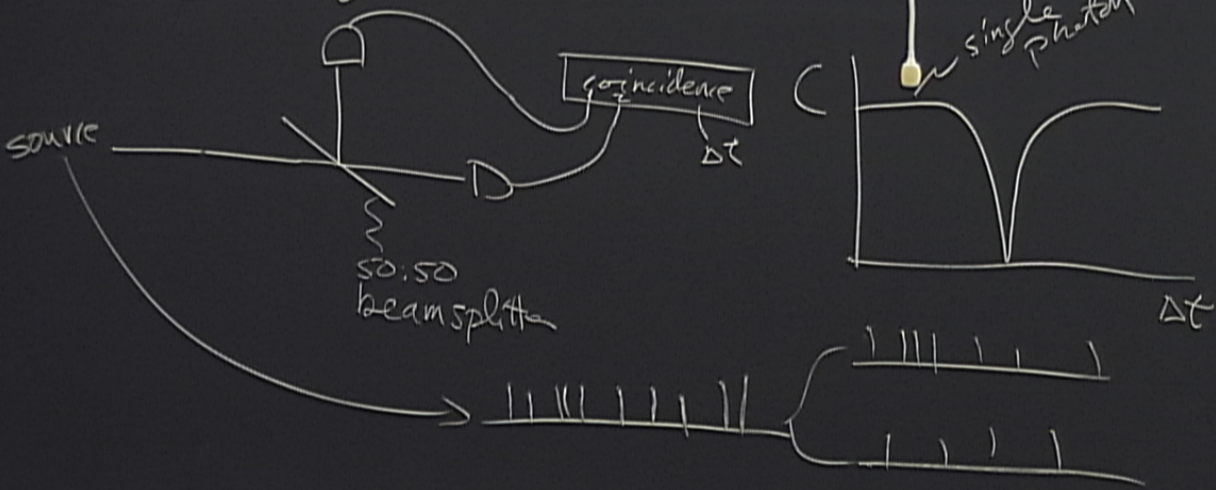 source
50:50
beamsplitter
coincidence
Δt
C
single
photon
Δt